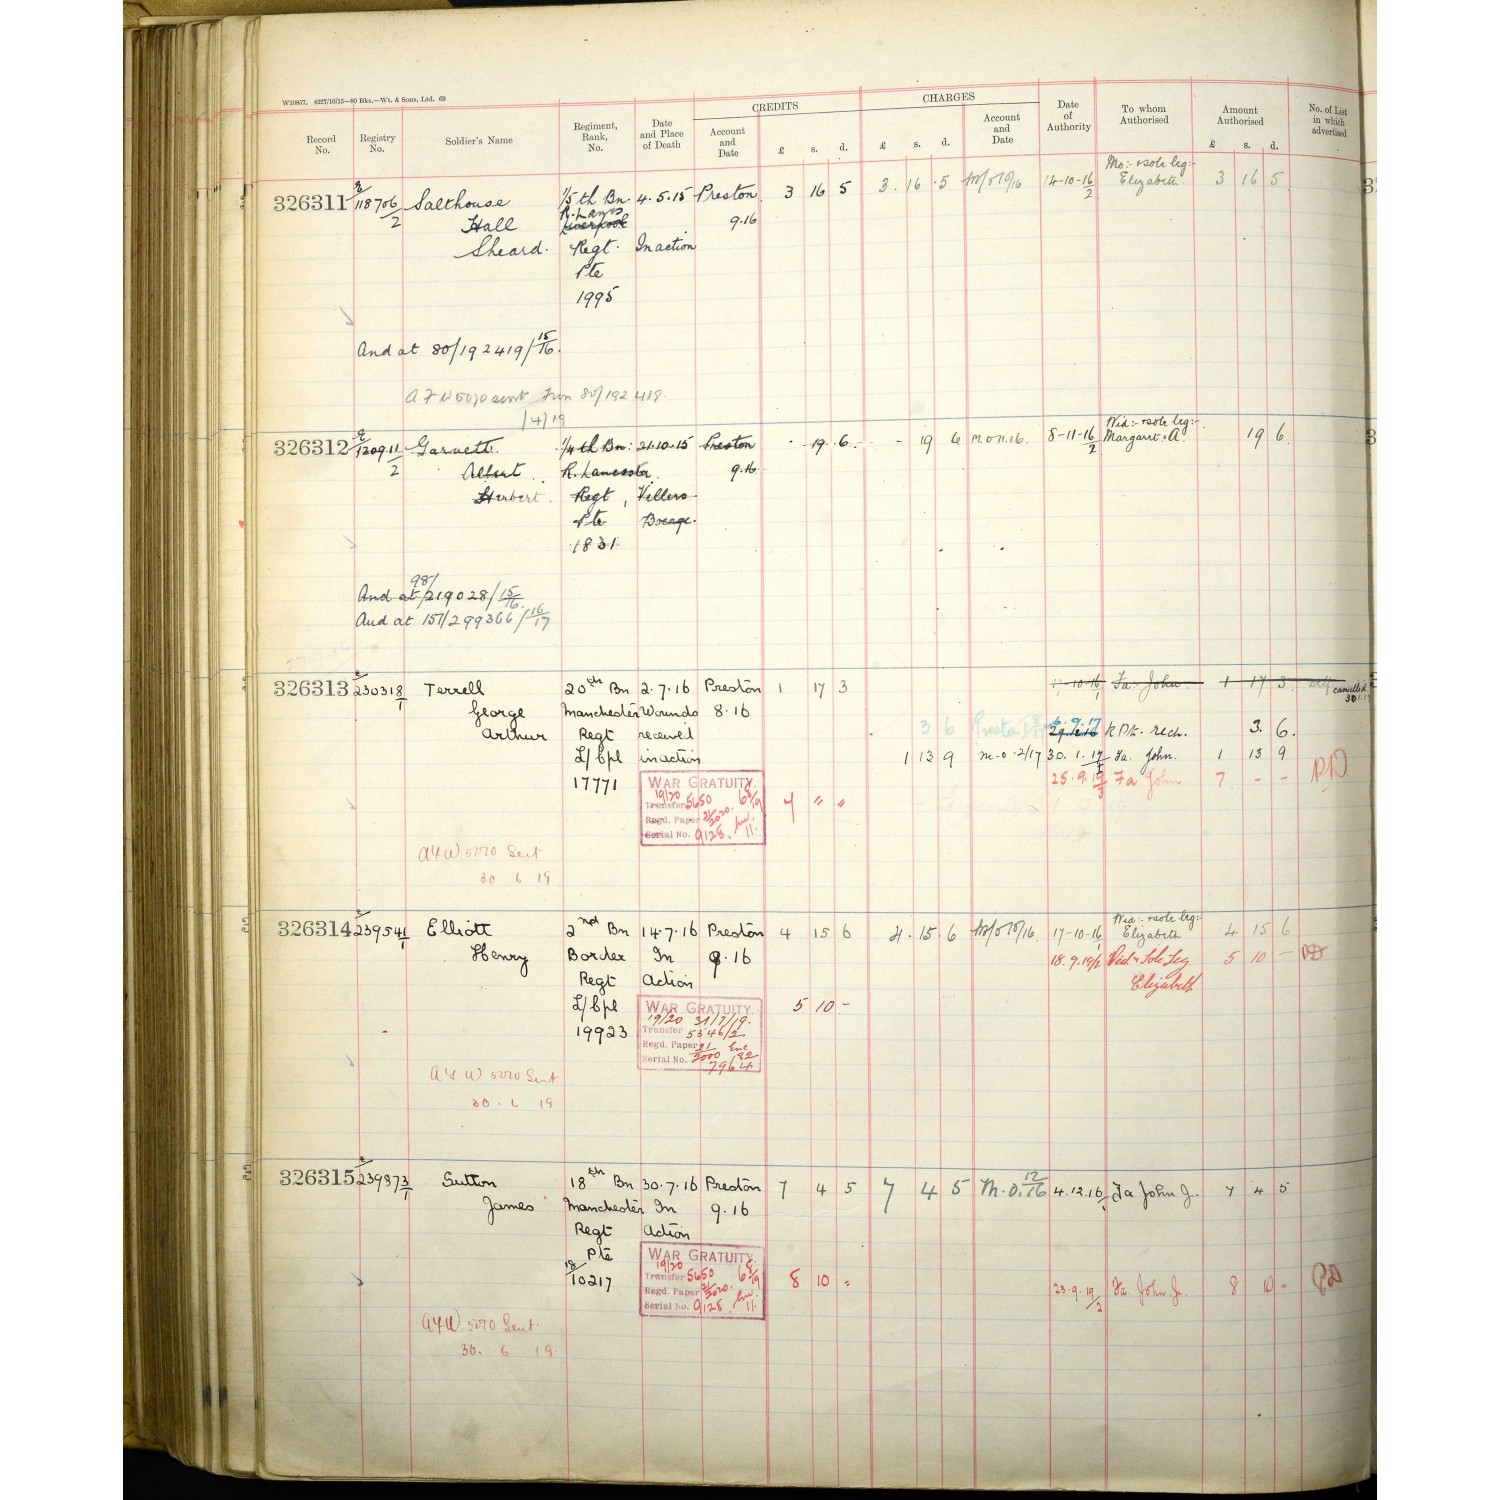 W10857. 4227/10/15—80 Bks.—Wt. & Sons, Ltd. 69
CREDITS CHARGES
Record No. Registry No. Soldier's Name Regiment, Rank, No. Date and Place of Death Account and Date £ s. d. £ s. d. Account and Date Date of Authority To whom Authorised Amount Authorised £ s. d. No. of List in which advertised
Mo:- & sole leg:-
326311 E/118706/2 Salthouse 1/5th Bn. 4.5.15 Preston 3 16 5 3. 16 .5 M/o 10/16 14-10-16/2 Elizabeth 3 16 5
Hall R. Lancs Liverpool 9.16
Sheard. Regt. In action
Pte
1995
And at 80/192419/15/16.
A F W 5070 sent from 80/192419.
/4/19
Wid:- & sole leg:-
326312 E/120911/2 Garnett 1/4th Bn: 21.10.15 Preston - 19. 6. - 19 6 M.O 11.16. 8-11-16/2 Margaret A. 19 6
Albert R. Lancaster 9.16
Herbert Regt, Villers-
Pte Bocage.
1831
98/
And at 219028/15/16.
And at 151/299366/16/17
326313 E/230318/1 Terrell 20th Bn 2.7.16 Preston 1 17 3 17-10-16/1 Fa. John 1 17 3. cancelled
George Manchester Wounds 8.16
Arthur Regt received 3 6 Preston 6.9.17 R Pk. rech. 3. 6.
L/Cpl in action 1 13 9 M-O-2/17 30.1.17 Fa. John. 1 13 9
17771 25.9.19/3 Fa John 7 - - PD
WAR GRATUITY.
19/20
Transfer 5650 68/19 7 " "
Regd. Paper 21/2020.
Serial No. 9128. 11.
AFW 5070 Sent
30 6 19
Wid:- & sole leg:-
326314 E/239541/1 Elliott 2nd Bn 14.7.16 Preston 4 15 6 4. 15. 6 M/o 10/16. 17-10-16/1 Elizabeth 4 15 6
Henry Border In 9.16 18.9.19/2 Wid & Sole Leg 5 10 - PD
Regt Action Elizabeth
L/Cpl WAR GRATUITY. 5 10 -
19923 19/20 31/7/19.
Transfer 5546/2
Regd. Paper 21/2000
Serial No. 82/7964
AFW 5070 Sent
30. 6 19
326315 E/239873/1 Sutton 18th Bn 30.7.16 Preston 7 4 5 7 4 5 M.O. 12/16 4.12.16/1 Fa John J. 7 4 5
James Manchester In 9.16
Regt Action
Pte WAR GRATUITY.
18/10217 19/20
Transfer 5650 68/19 8 10 - 23.9.19/2 Fa. John J. 8 10 - PD
Regd. Paper 21/2020.
Serial No. 9128. 11.
AFW 5070 Sent.
30. 6 19.